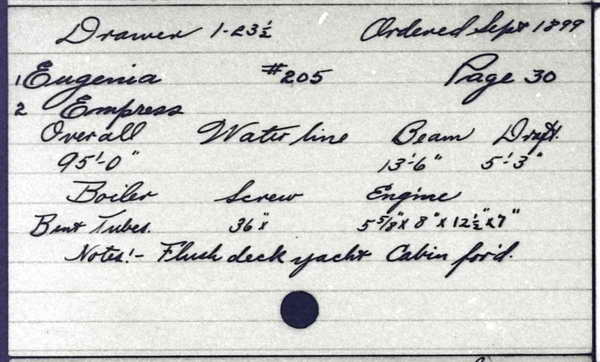 Drawer 1-23½ Ordered Sept 1899
1 Eugenia #205 Page 30
2 Empress
Overall Water line Beam Draft.
95'-0" 13'-6" 5'-3"
Boiler Screw Engine
Bent Tubes. 36" 5 5/8" x 8" x 12½" x 7"
Notes:- Flush deck yacht Cabin for'd.